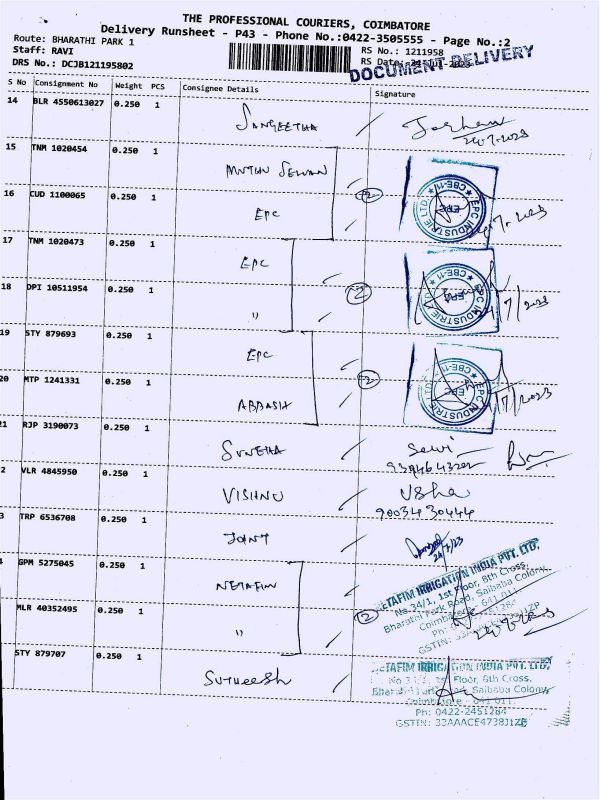 THE PROFESSIONAL COURIERS, COIMBATORE
Delivery Runsheet - P43 - Phone No.:0422-3505555 - Page No.:2
Route: BHARATHI PARK 1
Staff: RAVI
DRS No.: DCJB121195802
RS No.: 1211958
RS Date:
DOCUMENT DELIVERY
S No Consignment No Weight PCS Consignee Details Signature
14 BLR 4550613027 0.250 1 SANGEETHA
15 TNM 1020454 0.250 1 MUTHU SELVAN
16 CUD 1100065 0.250 1 EPC
EPC INDUSTRIE LTD. CBE-11
17 TNM 1020473 0.250 1 EPC
18 DPI 10511954 0.250 1 "
2
EPC INDUSTRIE LTD. CBE-11
19 STY 879693 0.250 1 EPC
20 MTP 1241331 0.250 1 ABBASH
EPC INDUSTRIE LTD. CBE-11
21 RJP 3190073 0.250 1 SUNETHA
2 VLR 4845950 0.250 1 VISHNU Usha
9003430444
3 TRP 6536708 0.250 1 JOINT
4 GPM 5275045 0.250 1 NETAFIM
MLR 40352495 0.250 1 "
2
ETAFIM IRRIGATION INDIA PVT. LTD,
No-34/1, 1st Floor, 8th Cross,
Bharathi Park Road, Saibaba Colony,
Coimbatore - 641 011.
STY 879707 0.250 1 Sutheesh
ETAFIM IRRIGATION INDIA PVT. LTD,
Floor, 8th Cross,
Saibaba Colony
Coimbatore - 641 011.
Ph: 0422-2451284
GSTIN: 33AAACE4738J1ZP